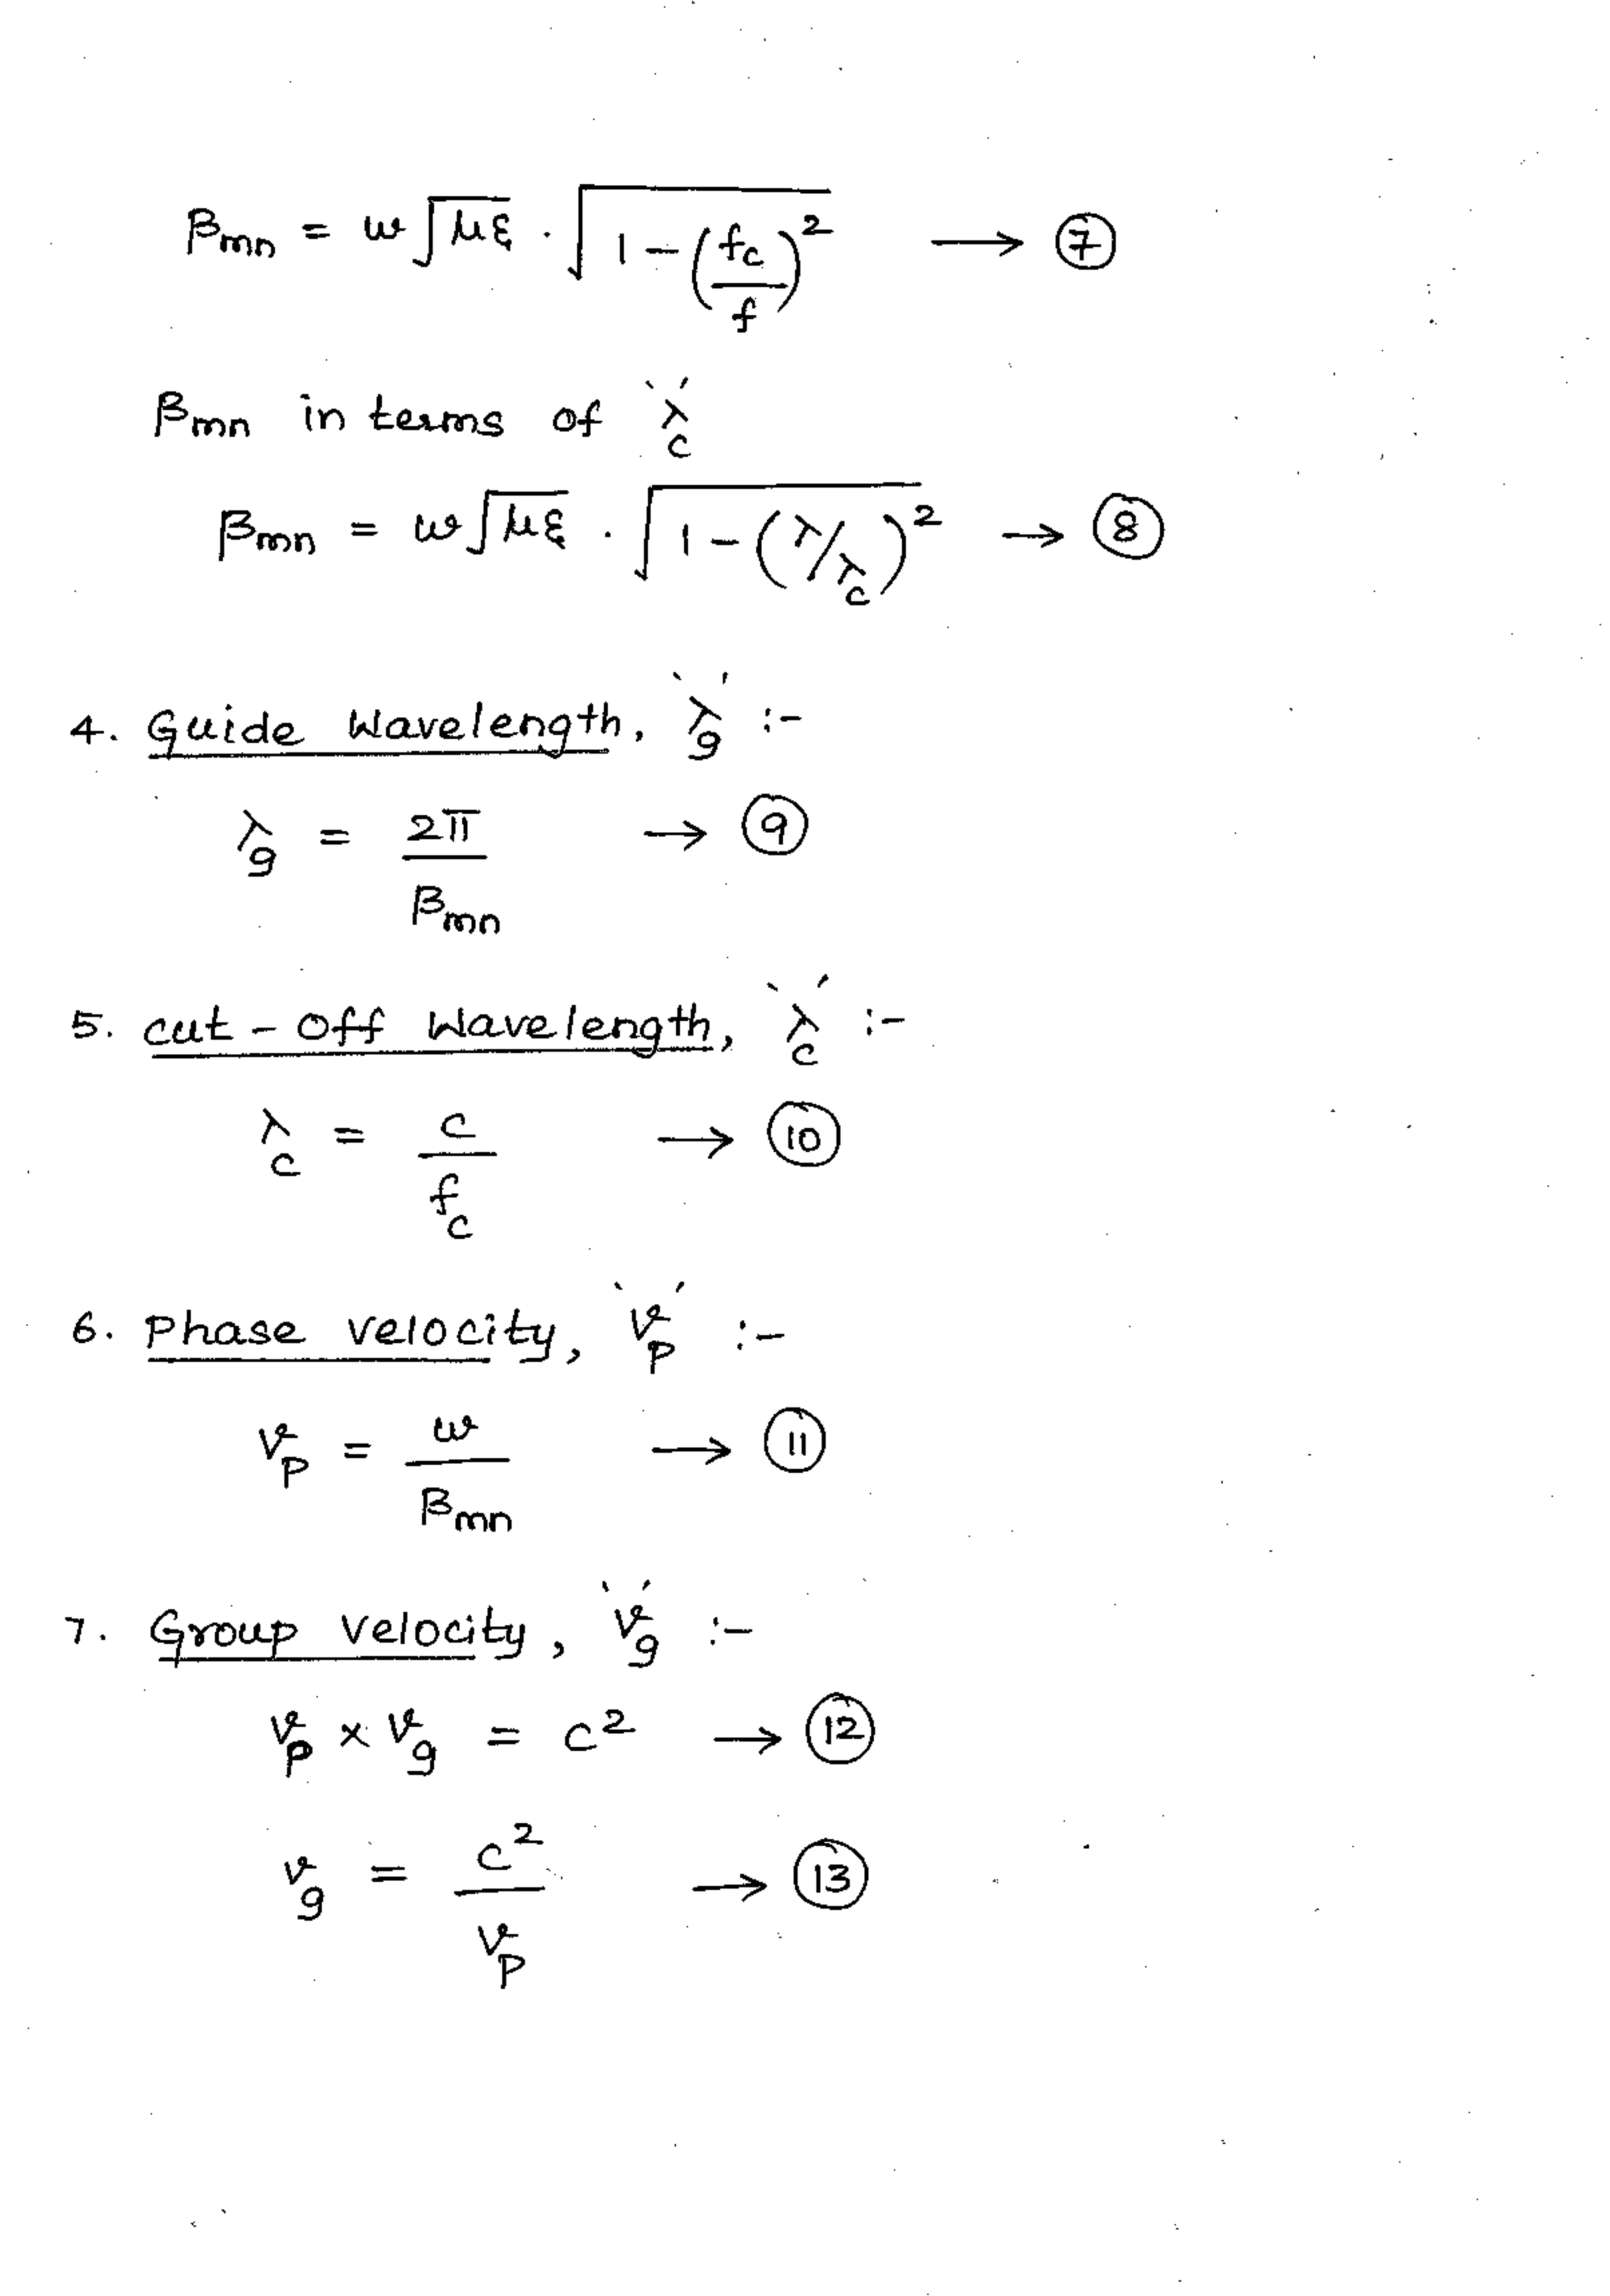 βmn = ω√με · √1 - (fc/f)² → 7
βmn in terms of 'λc'
βmn = ω√με · √1 - (λ/λc)² → 8
4. Guide Wavelength, 'λg' :-
λg = 2π/βmn → 9
5. cut-off Wavelength, 'λc' :-
λc = c/fc → 10
6. Phase velocity, 'vp' :-
vp = ω/βmn → 11
7. Group velocity, 'vg' :-
vp × vg = c² → 12
vg = c²/vp → 13